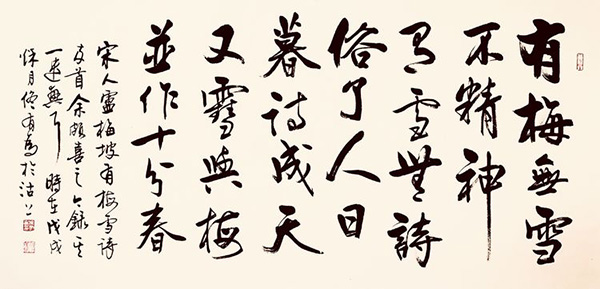 有梅無雪
不精神
有雪無詩
俗了人日
暮詩成天
又雪與梅
並作十分春
宋人盧梅坡有梅雪詩
首余頗喜之今錄其
一 時在戊戌
於沽上